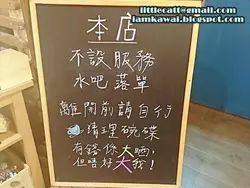 littlecatt@gmail.com
iamkawai.blogspot.com
本店
不設服務
水吧落單
離開前請自行
清理碗碟
有錢你大晒,
但唔好大我!